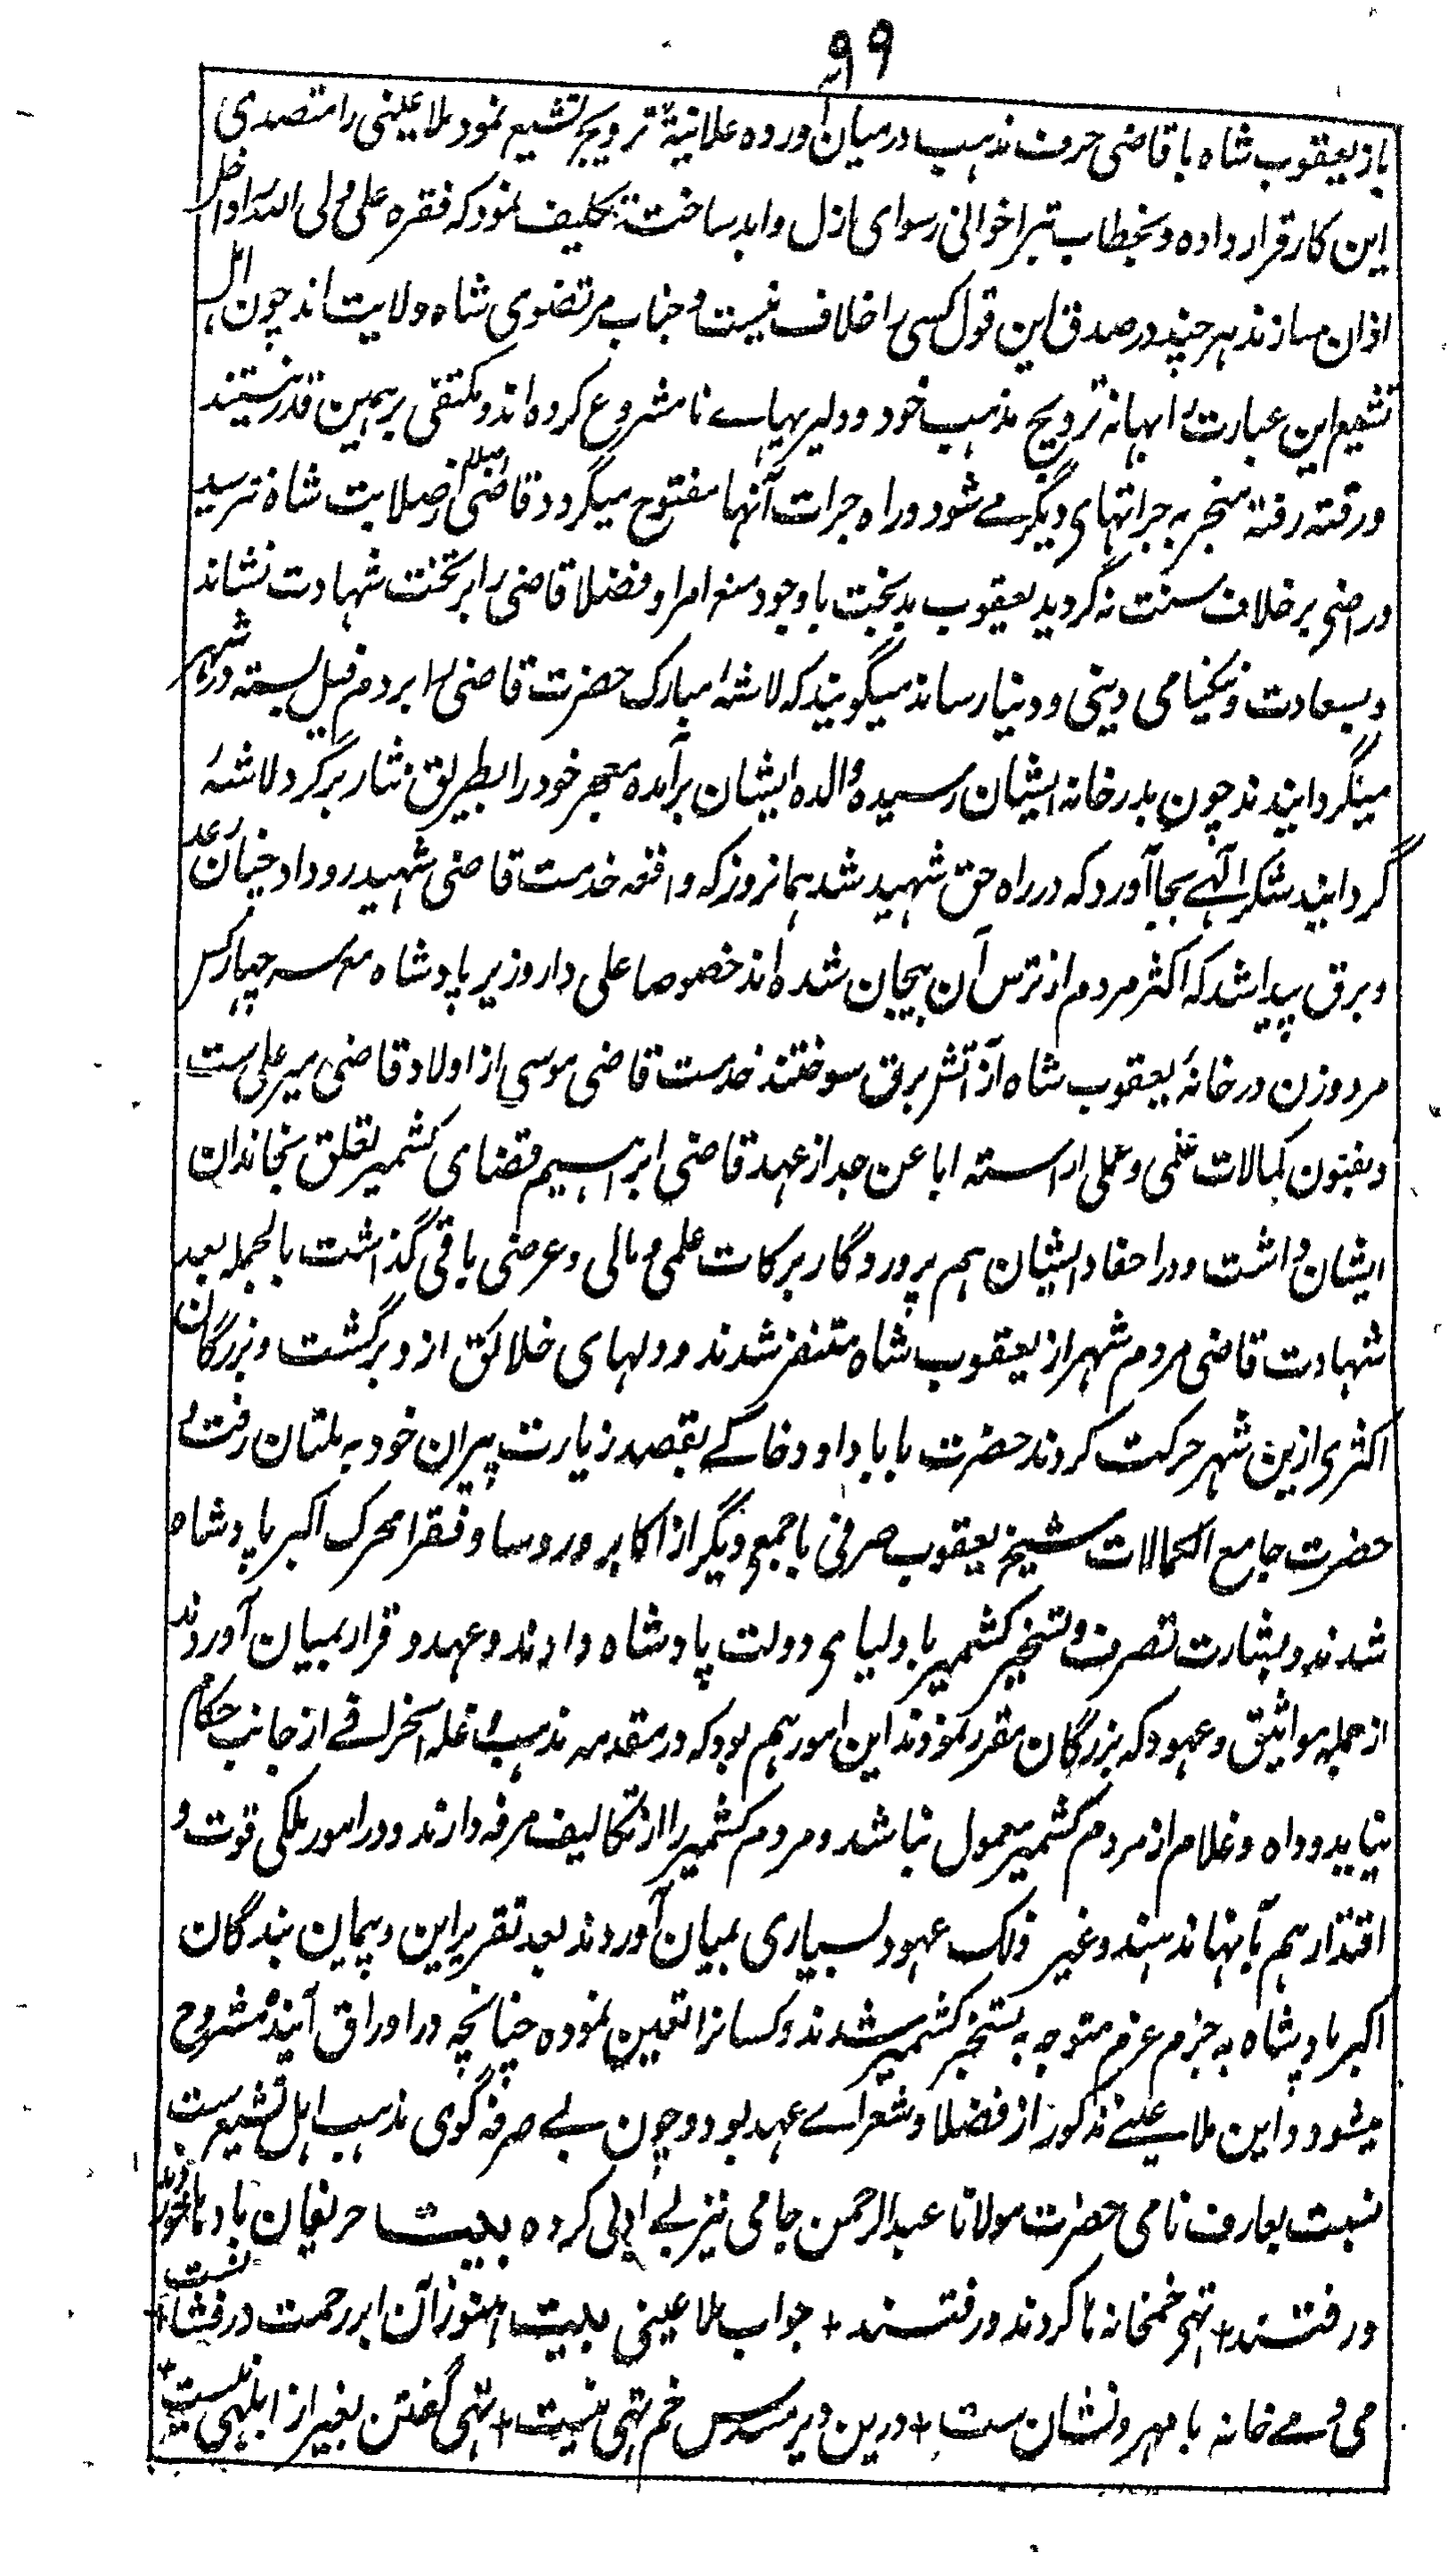 ۹۹
باز یعقوب شاه با قاضی حرف مذهب درمیان آورده علانیةً ترویج تشیع نمود ملا عینی را متصدی
این کار قرار داده و بخطاب تبرا خوانی رسوای ازل و ابد ساخت تکلیف نمود که فقره علی ولی الله را داخل
اذان سازند هر چند در صدق این قول کسی را خلاف نیست و جناب مرتضوی شاه ولایت اند چون اهل
تشیع این عبارت را بهانه ترویج مذهب خود و دلیریهاے نامشروع کرده اند و مکتفی برهمین قدر نیستند
و رفته رفته منجر به جراتهای دیگر مے شود و راه جرات آنها مفتوح میگردد قاضی اصلا از صلابت شاه نترسید
و راضی بر خلاف سنت نه گردید یعقوب بدبخت باوجود منع امرا و فضلا قاضی را بر تخت شهادت نشاند
و بسعادت و نیکنامی دینی و دنیا رساند میگویند که لاشهٔ مبارک حضرت قاضی را بر دم فیل بسته در شهر
میگردانیدند چون بدر خانه ایشان رسیده والده ایشان برآمده معجر خود را بطریق نثار بر گرد لاشهٔ
گردانید شکر الٓهے بجا آورد که در راه حق شهید شد همانروز که واقعه خدمت قاضی شهید رو داد چنان رعد
و برق پیدا شد که اکثر مردم از ترس آن بیجان شده اند خصوصا علی دار وزیر پادشاه مع سه چهار کس
مرد و زن در خانهٔ یعقوب شاه از آتش برق سوختند خدمت قاضی موسی از اولاد قاضی میر علی ست
و بفنون کمالات علمی و عملی اراسته ابا عن جد از عهد قاضی ابراهیم قضای کشمیر تعلق بخاندان
ایشان داشت و در احفاد ایشان هم پروردگار برکات علمی و مالی و عرضی باقی گذاشت بالجمله بعد
شهادت قاضی مردم شهر از یعقوب شاه متنفر شدند و دلهای خلائق از و برگشت و بزرگان
اکثری ازین شهر حرکت کردند حضرت بابا داود خاکے بقصد زیارت پیران خود به ملتان رفت و
حضرت جامع الکمالات شیخ یعقوب صرفی با جمعی دیگر از اکابر و روسا و فقرا محرک اکبر پادشاه
شدند و بشارت تصرف و تسخیر کشمیر باولیای دولت پادشاه دادند و عهد و قرار بمیان آوردند
از جمله مواثیق و عهود که بزرگان مقرر نمودند این امور هم بود که در مقدمه مذهب و غله انحرافے از جانب حکام
نیاید و داه و غلام از مردم کشمیر معمول نباشد و مردم کشمیر را از تکالیف مرفه دارند و در امور ملکی قوت و
اقتدار هم بآنها ندهند و غیر ذلک عهود بسیاری بمیان آوردند بعد تقریر این و پیمان بندگان
اکبر بادشاه به جزم عزم متوجه به تسخیر کشمیر شدند و کسانرا تعین نموده چنانچه در اوراق آینده مشروح
میشود و این ملا عینے مذکور از فضلا و شعراے عهد بود و چون بے صرفه گوی مذهب اهل تشیع ست
نسبت بعارف نامی حضرت مولانا عبدالرحمن جامی نیز بے ادبی کرده بیت حریفان بادها خوردند
و رفتند + تهی خمخانه ها کردند و رفتند + جواب ملا عینی بیت هنوز آن ابر رحمت در فشانست +
می و مے خانه با مهر و نشان ست + درین دیر مسدس خم تهی نیست + تهی گفتن بغیر از ابلهی نیست +